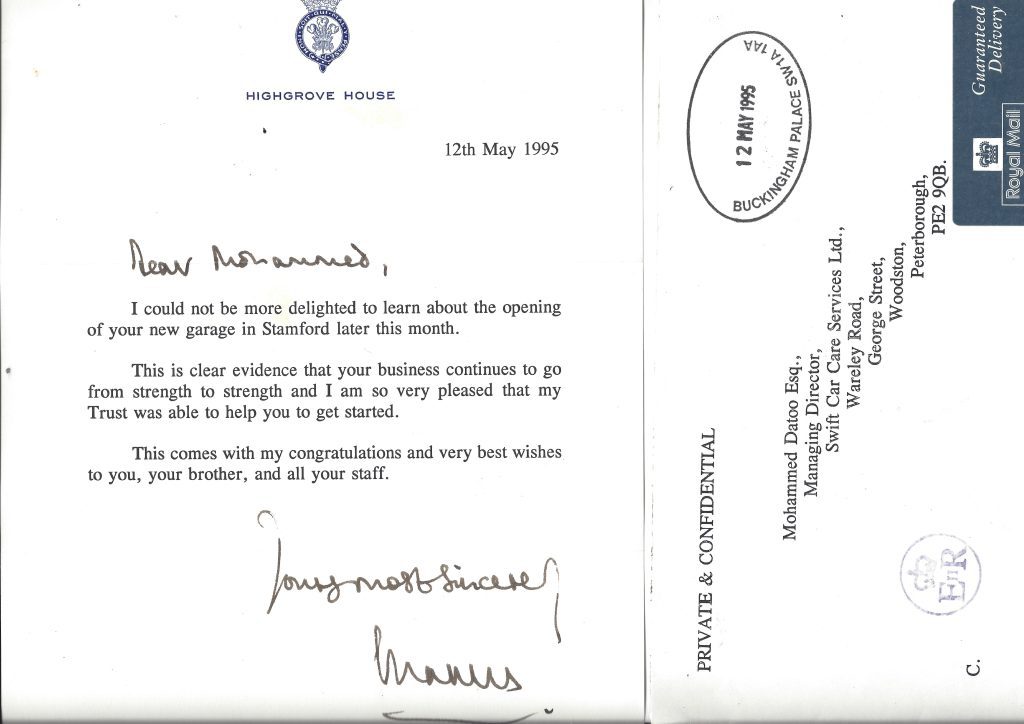 HIGHGROVE HOUSE
12th May 1995
Dear Mohammed,
I could not be more delighted to learn about the opening
of your new garage in Stamford later this month.
This is clear evidence that your business continues to go
from strength to strength and I am so very pleased that my
Trust was able to help you to get started.
This comes with my congratulations and very best wishes
to you, your brother, and all your staff.
Yours most sincerely
Charles
Guaranteed
Delivery
Royal Mail
BUCKINGHAM PALACE SW1A 1AA
12 MAY 1995
PRIVATE & CONFIDENTIAL
Mohammed Datoo Esq.,
Managing Director,
Swift Car Care Services Ltd.,
Wareley Road,
George Street,
Woodston,
Peterborough,
PE2 9QB.
EIIR
C.